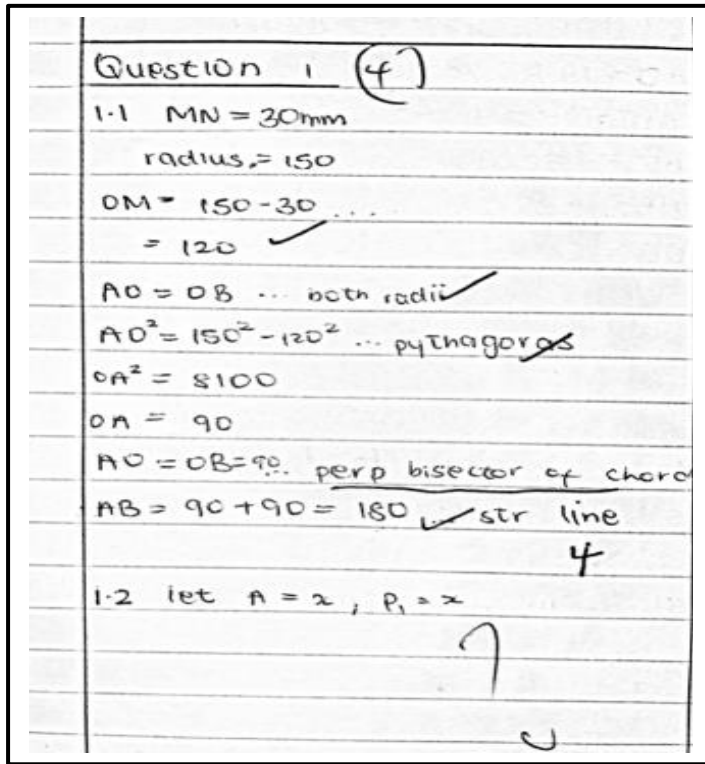 Question 1 (4)
1.1 MN = 30mm
radius, = 150
OM = 150 - 30 ...
= 120 ✓
AO = OB ... both radii ✓
AO² = 150² - 120² ... pythagoras
OA² = 8100
OA = 90
AO = OB = 90... perp bisector of chord
AB = 90 + 90 = 180 ✓ str line
4
1.2 let A = x, P₁ = x